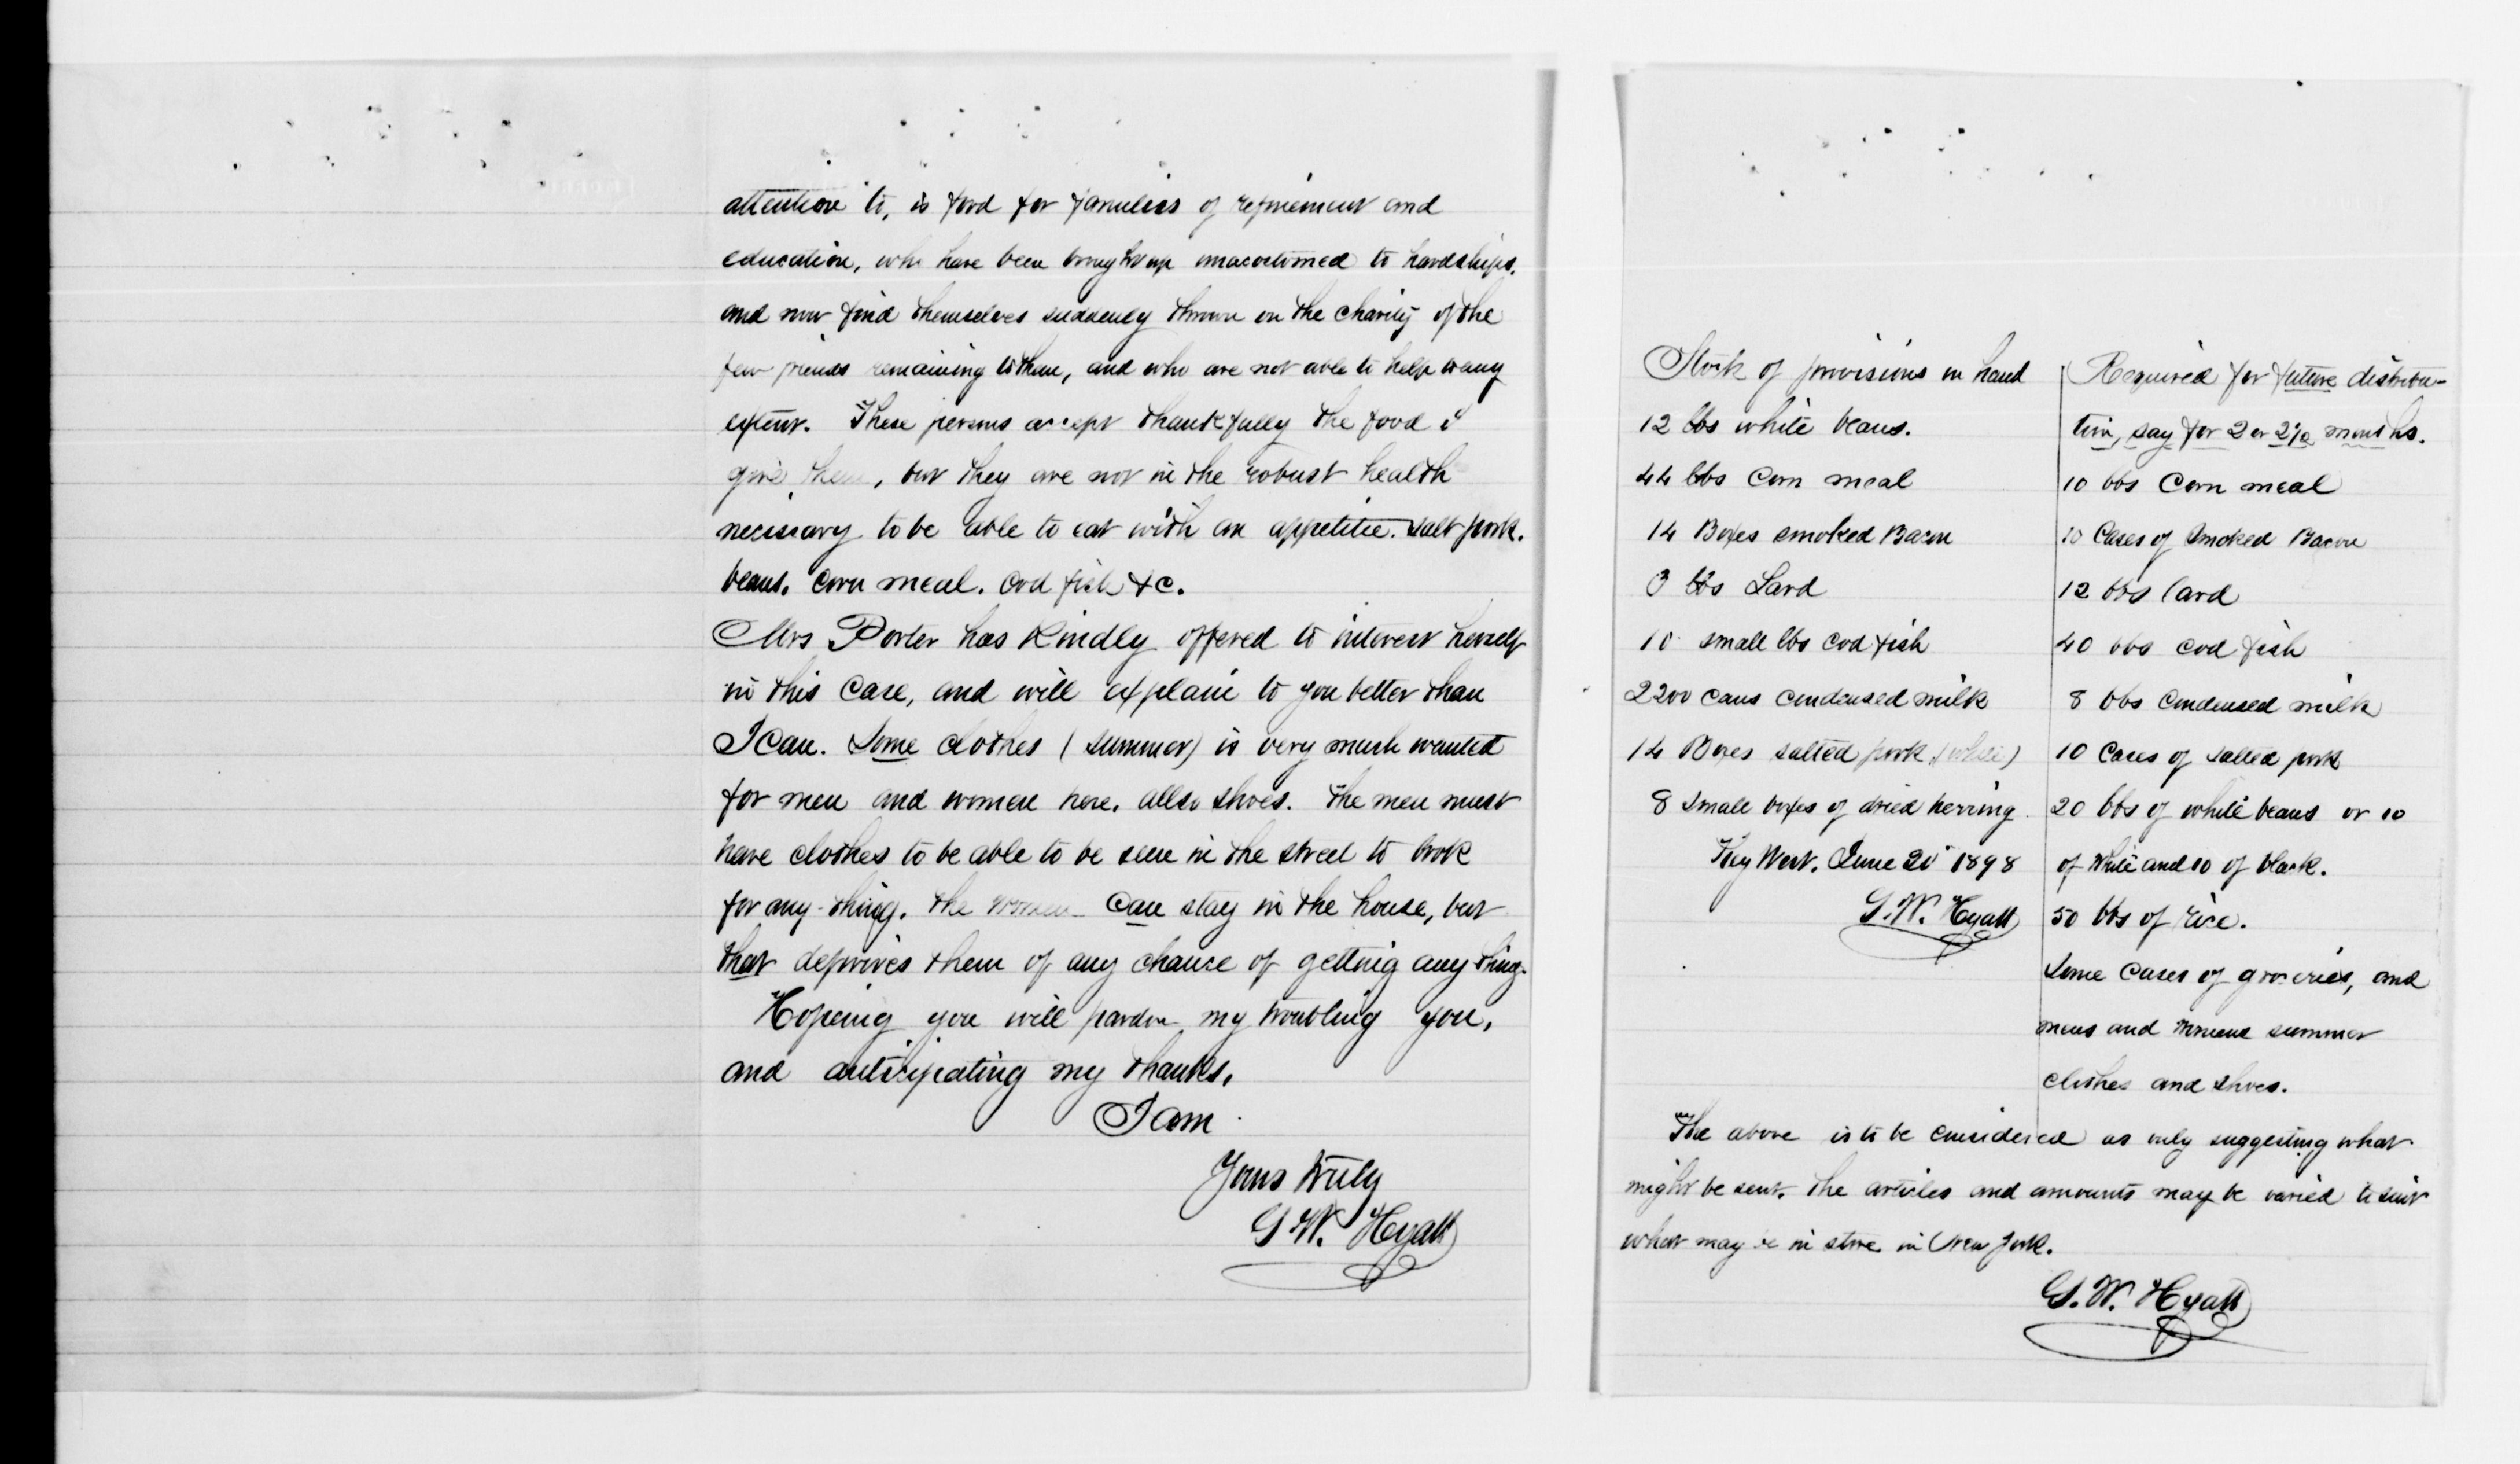 attention to, is food for families of refinement and
education, who have been brought up unaccustomed to hardships.
and now find themselves suddenly thrown on the charity of the
few friends remaining to them, and who are not able to help to any
extent. These persons accept thankfully the food I
give them, but they are not in the robust health
necessary to be able to eat with an appetite. salt pork.
beans. corn meal. cod fish &c.
Mrs Porter has kindly offered to interest herself
in this case, and will explain to you better than
I can. Some clothes (summer) is very much wanted
for men and women here. allso shoes. The men must
have clothes to be able to be seen in the street to look
for any-thing. The women can stay in the house, but
that deprives them of any chance of getting any thing.
Hopeing you will pardon my troubling you,
and anticipating my thanks.
I am
Yours truly
G. W. Hyatt
Stock of provisions on hand
12 bbs white beans.
44 bbs corn meal
14 Boxes smoked Bacon
3 bbs Lard
10 small bbs cod fish
2200 cans condensed milk
14 Boxes salted pork (white)
8 small boxes of dried herring
Key West. June 20 1898
G. W. Hyatt
Required for future distribu-
tion, say for 2 or 2½ months.
10 bbs Corn meal
10 Cases of smoked Bacon
12 bbs lard
40 bbs cod fish
8 bbs condensed milk
10 Cases of salted pork
20 bbs of white beans or 10
of white and 10 of black.
50 bbs of rice.
Some cases of groceries, and
mens and womens summer
clothes and shoes.
The above is to be considered as only suggesting what
might be sent. The articles and amounts may be varied to suit
what may be in store in New York.
G. W. Hyatt